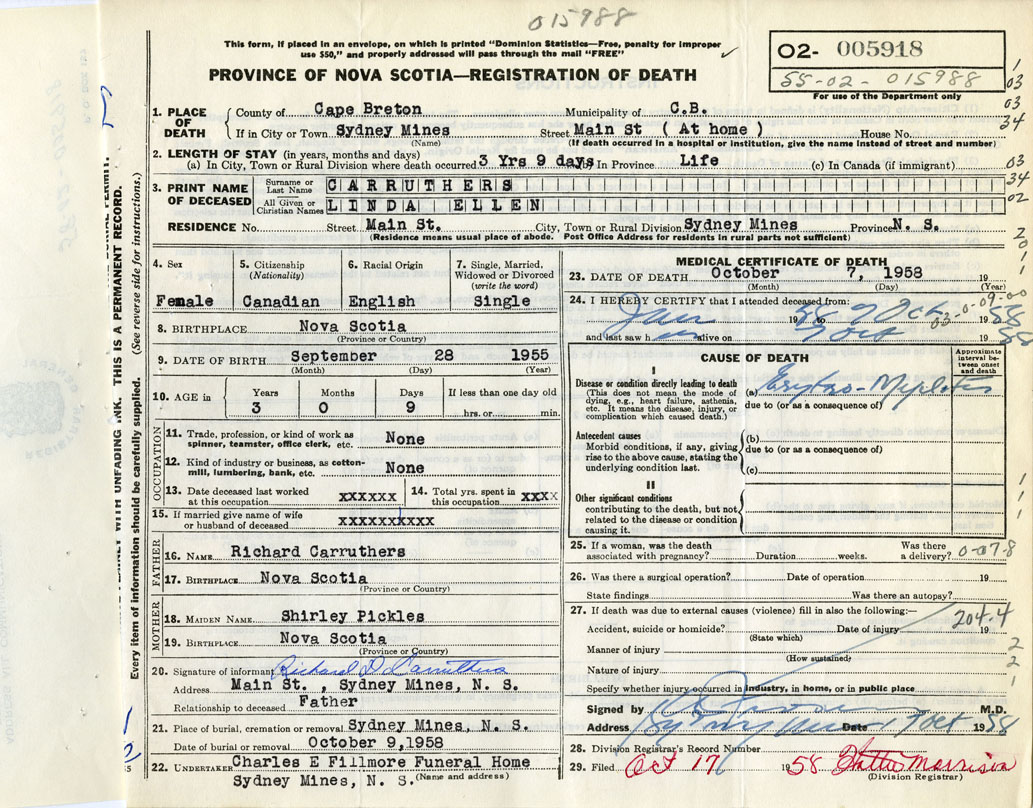 015988
This form, if placed in an envelope, on which is printed "Dominion Statistics—Free, penalty for improper
use $50," and properly addressed will pass through the mail "FREE"
02- 005918
SS-02- 015988
For use of the Department only
PROVINCE OF NOVA SCOTIA—REGISTRATION OF DEATH
1. PLACE OF DEATH County of Cape Breton Municipality of C.B.
If in City or Town Sydney Mines Street Main St ( At home ) House No.
(Name) (If death occurred in a hospital or institution, give the name instead of street and number)
2. LENGTH OF STAY (in years, months and days)
(a) In City, Town or Rural Division where death occurred 3 Yrs 9 days In Province Life (c) In Canada (if immigrant)
3. PRINT NAME OF DECEASED Surname or Last Name CARRUTHERS
All Given or Christian Names LINDA ELLEN
RESIDENCE No. Street Main St. City, Town or Rural Division Sydney Mines Province N. S.
(Residence means usual place of abode. Post Office Address for residents in rural parts not sufficient)
1
03
03
34
03
34
02
2
0
3
4. Sex
Female
5. Citizenship
(Nationality)
Canadian
6. Racial Origin
English
7. Single, Married,
Widowed or Divorced
(write the word)
Single
8. BIRTHPLACE Nova Scotia
(Province or Country)
9. DATE OF BIRTH September 28 1955
(Month) (Day) (Year)
10. AGE in Years Months Days If less than one day old
3 0 9 hrs. or min.
OCCUPATION
11. Trade, profession, or kind of work as
spinner, teamster, office clerk, etc. None
12. Kind of industry or business, as cotton-
mill, lumbering, bank, etc. None
13. Date deceased last worked
at this occupation xxxxxx
14. Total yrs. spent in
this occupation xxxx
15. If married give name of wife
or husband of deceased xxxxxxxxxx
FATHER
16. NAME Richard Carruthers
17. BIRTHPLACE Nova Scotia
(Province or Country)
MOTHER
18. MAIDEN NAME Shirley Pickles
19. BIRTHPLACE Nova Scotia
(Province or Country)
20. Signature of informant Richard D Carruthers
Address Main St. , Sydney Mines, N. S.
Relationship to deceased Father
21. Place of burial, cremation or removal Sydney Mines, N. S.
Date of burial or removal October 9,1958
22. UNDERTAKER Charles E Fillmore Funeral Home
Sydney Mines, N. S. (Name and address)
MEDICAL CERTIFICATE OF DEATH
23. DATE OF DEATH October 7, 1958 19
(Month) (Day) (Year)
24. I HEREBY CERTIFY that I attended deceased from:
Jan 19 58 to 7 Oct 19 58
03-0-09-00
and last saw h alive on 7 Oct 19 58
CAUSE OF DEATH
Approximate
interval be-
tween onset
and death
I
Disease or condition directly leading to death
(This does not mean the mode of
dying, e.g., heart failure, asthenia,
etc. It means the disease, injury, or
complication which caused death.)
(a)
due to (or as a consequence of)
Antecedent causes
Morbid conditions, if any, giving
rise to the above cause, stating the
underlying condition last.
(b)
due to (or as a consequence of)
(c)
II
Other significant conditions
contributing to the death, but not
related to the disease or condition
causing it.
25. If a woman, was the death
associated with pregnancy? Duration weeks. Was there
a delivery? 0-07-8
26. Was there a surgical operation? Date of operation 19
State findings Was there an autopsy?
27. If death was due to external causes (violence) fill in also the following:—
204-4
Accident, suicide or homicide? Date of injury 19
(State which)
Manner of injury
(How sustained)
Nature of injury
Specify whether injury occurred in industry, in home, or in public place
2
2
1
Signed by M.D.
Address Sydney Mines Date 7 Oct 1958
28. Division Registrar's Record Number
29. Filed Oct 17 1958 Hattie Morrison
(Division Registrar)
WITH UNFADING INK. THIS IS A PERMANENT RECORD.
Every item of information should be carefully supplied. (See reverse side for instructions.)